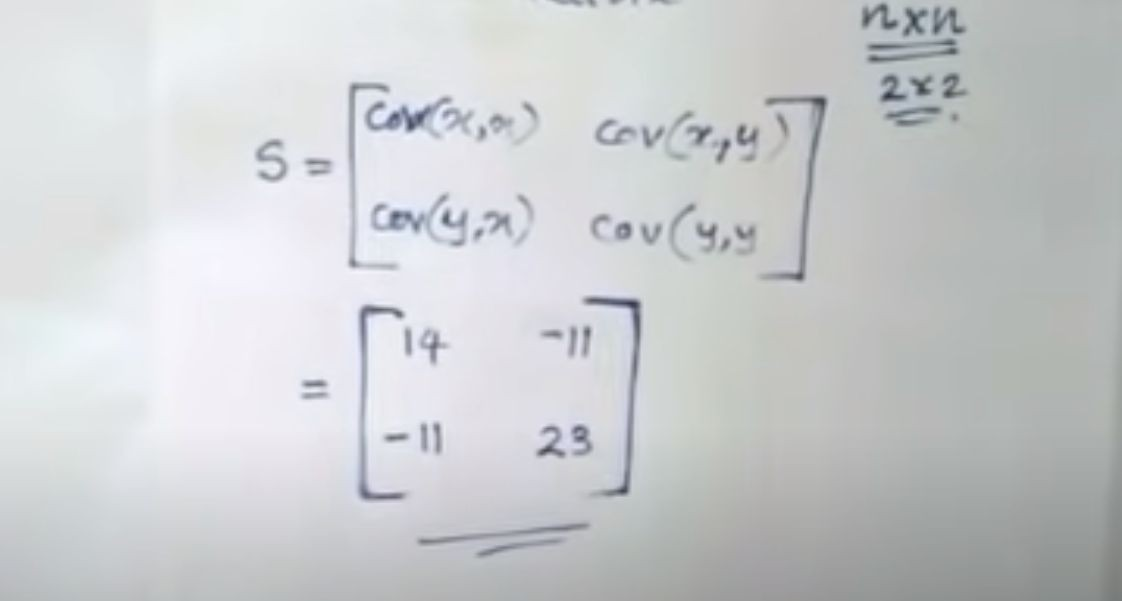 n×n
2×2.
S = [cov(x,x) cov(x,y)
cov(y,x) cov(y,y]
= [14 -11
-11 23]